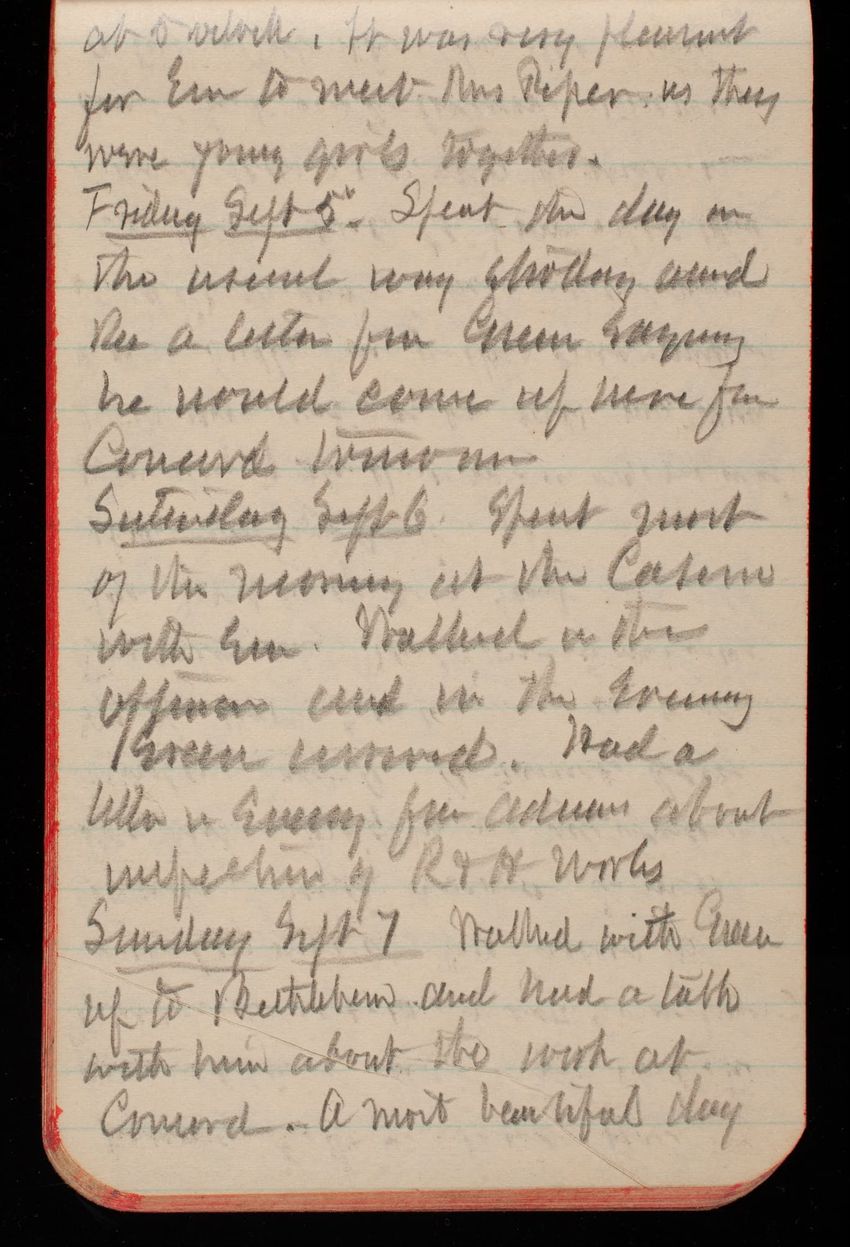 at 5 o'clock. It was very pleasant
for Em to meet Mrs Piper as they
were young girls together.
Friday Sept 5". Spent the day in
the usual way today and
Rec a letter from Green saying
he would come up here from
Concord tomorrow
Saturday Sept 6 Spent most
of the morning at the Casino
with Em. Walked in the
afternoon and in the Evening
Green arrived. Had a
letter in Evening from Adams about
inspection of R & H Works
Sunday Sept 7 Walked with Green
up to Bethlehem and had a talk
with him about the work at
Concord. A most beautiful day